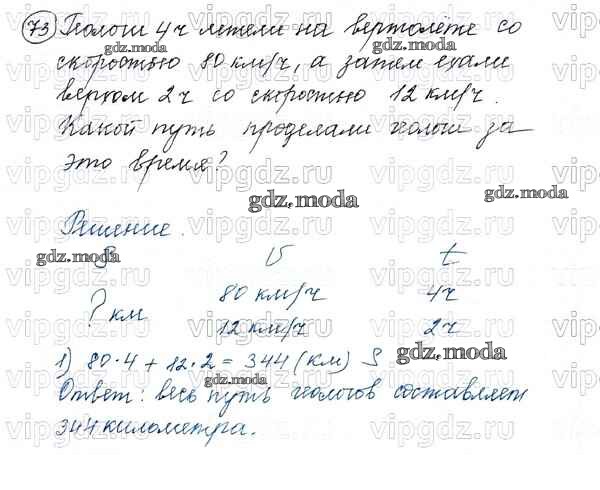 73 Геологи 4ч летели на вертолёте со
скоростью 80 км/ч, а затем ехали
верхом 2ч со скоростью 12 км/ч.
Какой путь проделали геологи за
это время?
Решение.
S V t
? км 80 км/ч 4ч
12 км/ч 2ч
1) 80·4 + 12·2 = 344 (км) S
Ответ: весь путь геологов составляет
344 километра.
gdz.moda
vipgdz.ru